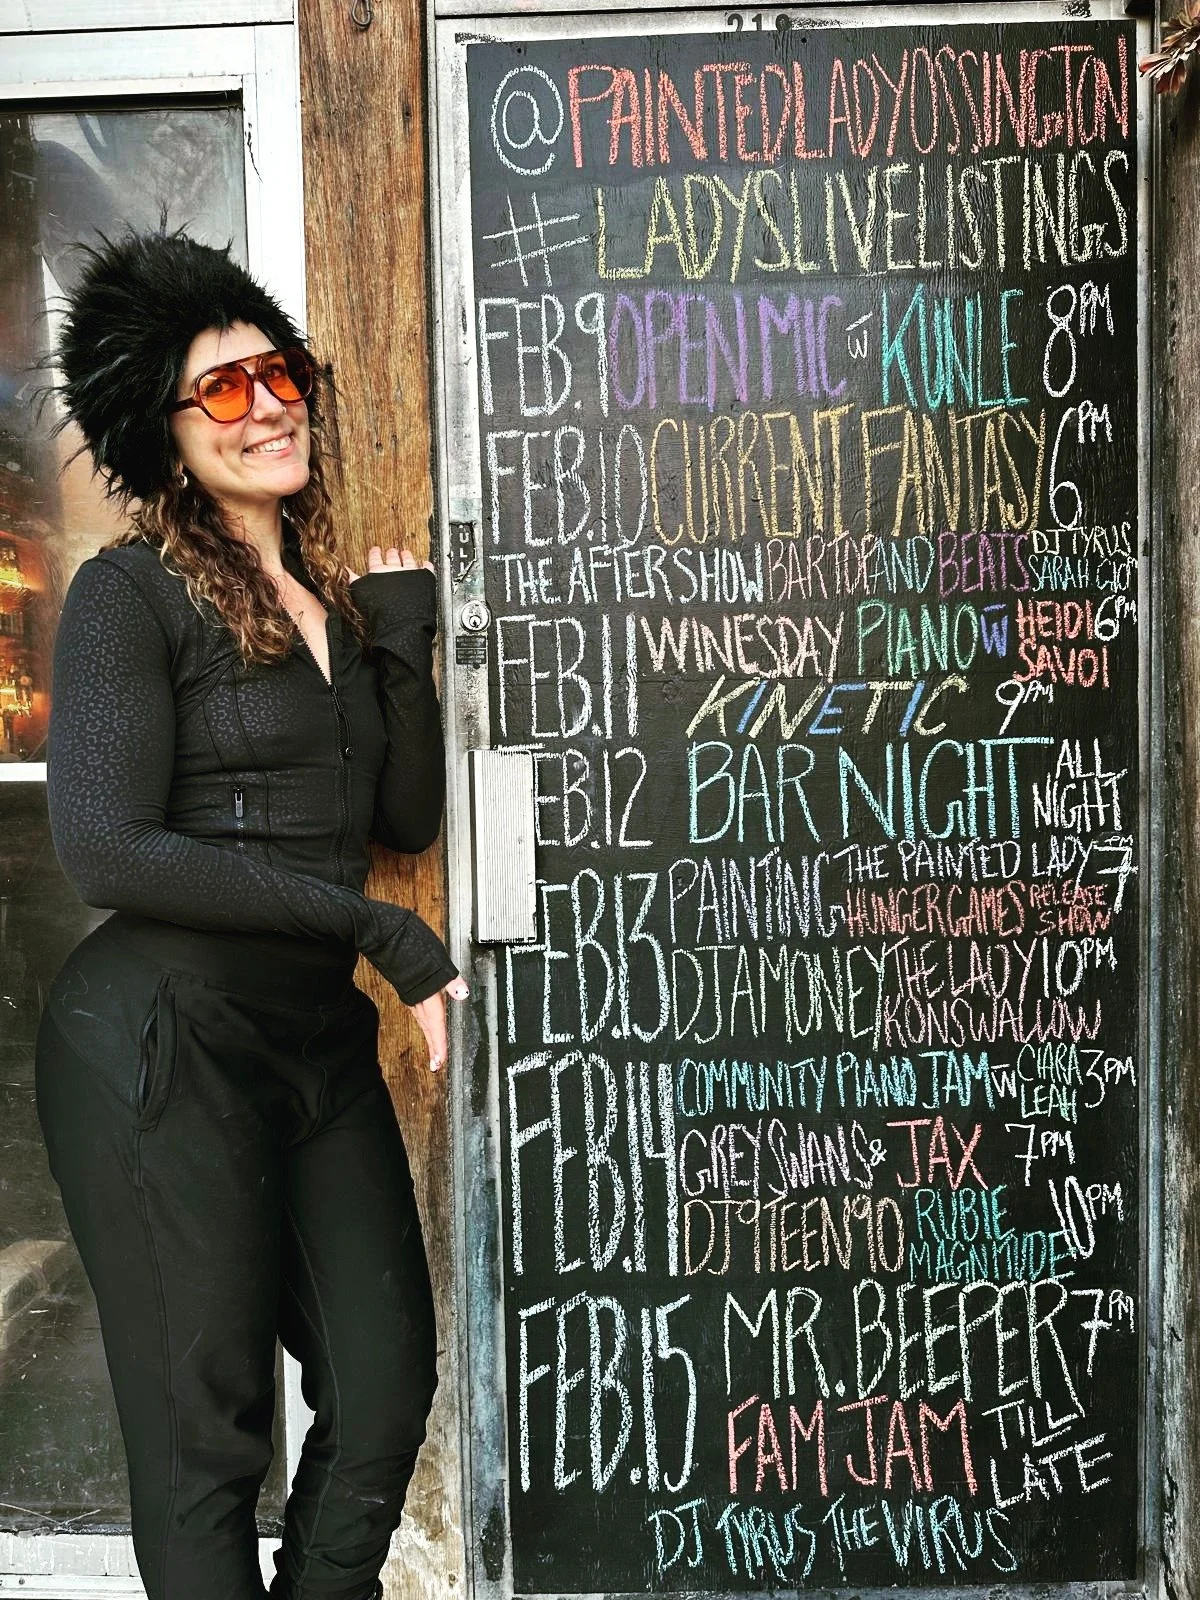 219
@PAINTEDLADYOSSINGTON
#LADYSLIVELISTINGS
FEB.9 OPEN MIC w KUNLE 8PM
FEB.10 CURRENT FANTASY 6PM
THE AFTERSHOW BARTOP AND BEATS DJ TYRUS SARAH G 10PM
FEB.11 WINESDAY PIANO w HEIDI SAVOI 6PM
KINETIC 9PM
FEB.12 BAR NIGHT ALL NIGHT
FEB.13 PAINTING THE PAINTED LADY 7PM
HUNGER GAMES RELEASE SHOW
DJ AMONEY THE LADY KONSWALLOW 10PM
FEB.14 COMMUNITY PIANO JAM w CIARA LEAH 3PM
GREY SWANS & JAX 7PM
DJ 9TEEN90 RUBIE MAGNITUDE 10PM
FEB.15 MR. BEEPER 7PM
FAM JAM TILL LATE
DJ TYRUS THE VIRUS